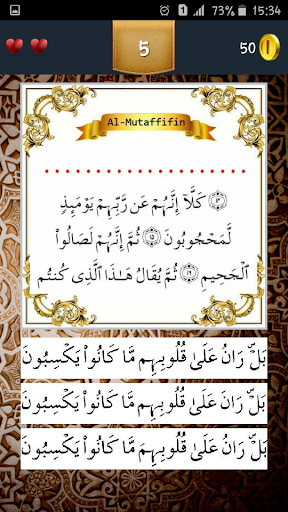 15:34
5
50
Al-Mutaffifin
..............................
١٤ كَلَّآ إِنَّهُمْ عَن رَّبِّهِمْ يَوْمَئِذٍ
لَّمَحْجُوبُونَ ١٥ ثُمَّ إِنَّهُمْ لَصَالُوا۟
ٱلْجَحِيمِ ١٦ ثُمَّ يُقَالُ هَـٰذَا ٱلَّذِى كُنتُم
بَلْ ۜ رَانُ عَلَىٰ قُلُوبِهِم مَّا كَانُوا۟ يَكْسِبُونَ
بَلْ ۜ رَانَ عَلَىٰ قُلُوبِهِم مَّا كَانُوا۟ يَكْسِبُونَ
بَلْ ۜ رَانَ عَلَىٰ قُلُوبِهِمَ مَّا كَانُوا۟ يَكْسِبُونَ